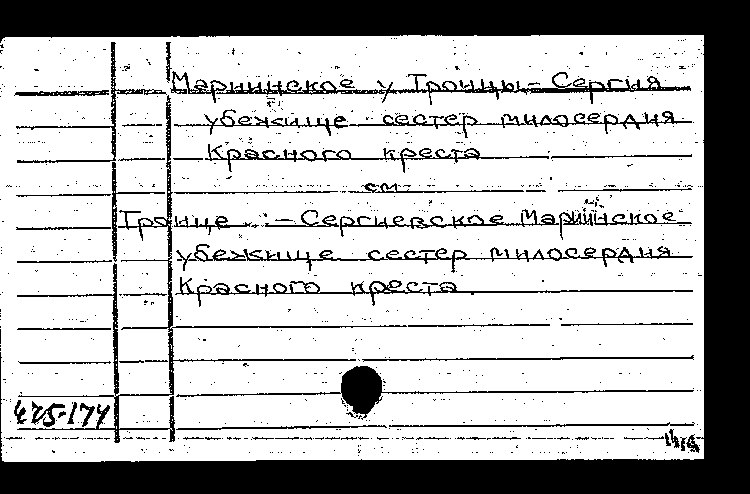 Мариинское у Троицы-Сергия
убежище сестер милосердия
Красного креста
см
Троице - Сергиевское Мариинское
убежище сестер милосердия
Красного креста.
425-174